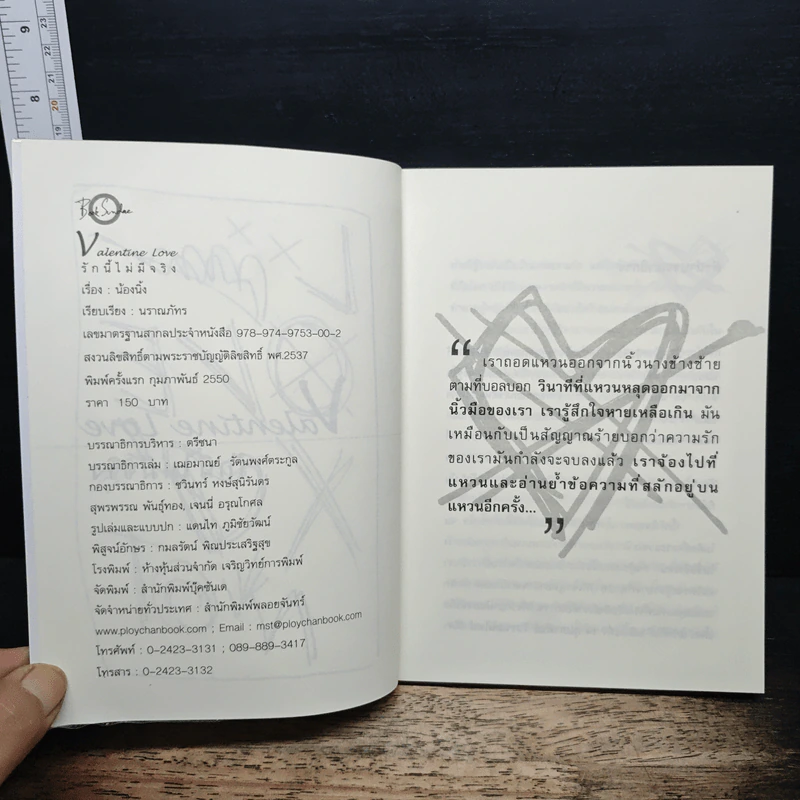 9
8
23
22
21
20
19
Book Sundae
Valentine Love
รักนี้ไม่มีจริง
เรื่อง : น้องนิ้ง
เรียบเรียง : นราณภัทร
เลขมาตรฐานสากลประจำหนังสือ 978-974-9753-00-2
สงวนลิขสิทธิ์ตามพระราชบัญญัติลิขสิทธิ์ พศ.2537
พิมพ์ครั้งแรก กุมภาพันธ์ 2550
ราคา 150 บาท
บรรณาธิการบริหาร : ตรีชนา
บรรณาธิการเล่ม : เฌอมาณย์ รัตนพงศ์ตระกูล
กองบรรณาธิการ : ชรินทร์ หงษ์สุนิรันดร
สุพรพรรณ พันธุ์ทอง, เจนนี่ อรุณโกศล
รูปเล่มและแบบปก : แดนไท ภูมิชัยวัฒน์
พิสูจน์อักษร : กมลรัตน์ พิณประเสริฐสุข
โรงพิมพ์ : ห้างหุ้นส่วนจำกัด เจริญวิทย์การพิมพ์
จัดพิมพ์ : สำนักพิมพ์บุ๊คซันเด
จัดจำหน่ายทั่วประเทศ : สำนักพิมพ์พลอยจันทร์
www.ploychanbook.com ; Email : mst@ploychanbook.com
โทรศัพท์ : 0-2423-3131 ; 089-889-3417
โทรสาร : 0-2423-3132
“ เราถอดแหวนออกจากนิ้วนางข้างซ้าย
ตามที่บอลบอก วินาทีที่แหวนหลุดออกมาจาก
นิ้วมือของเรา เรารู้สึกใจหายเหลือเกิน มัน
เหมือนกับเป็นสัญญาณร้ายบอกว่าความรัก
ของเรามันกำลังจะจบลงแล้ว เราจ้องไปที่
แหวนและอ่านย้ำข้อความที่สลักอยู่บน
แหวนอีกครั้ง... ”